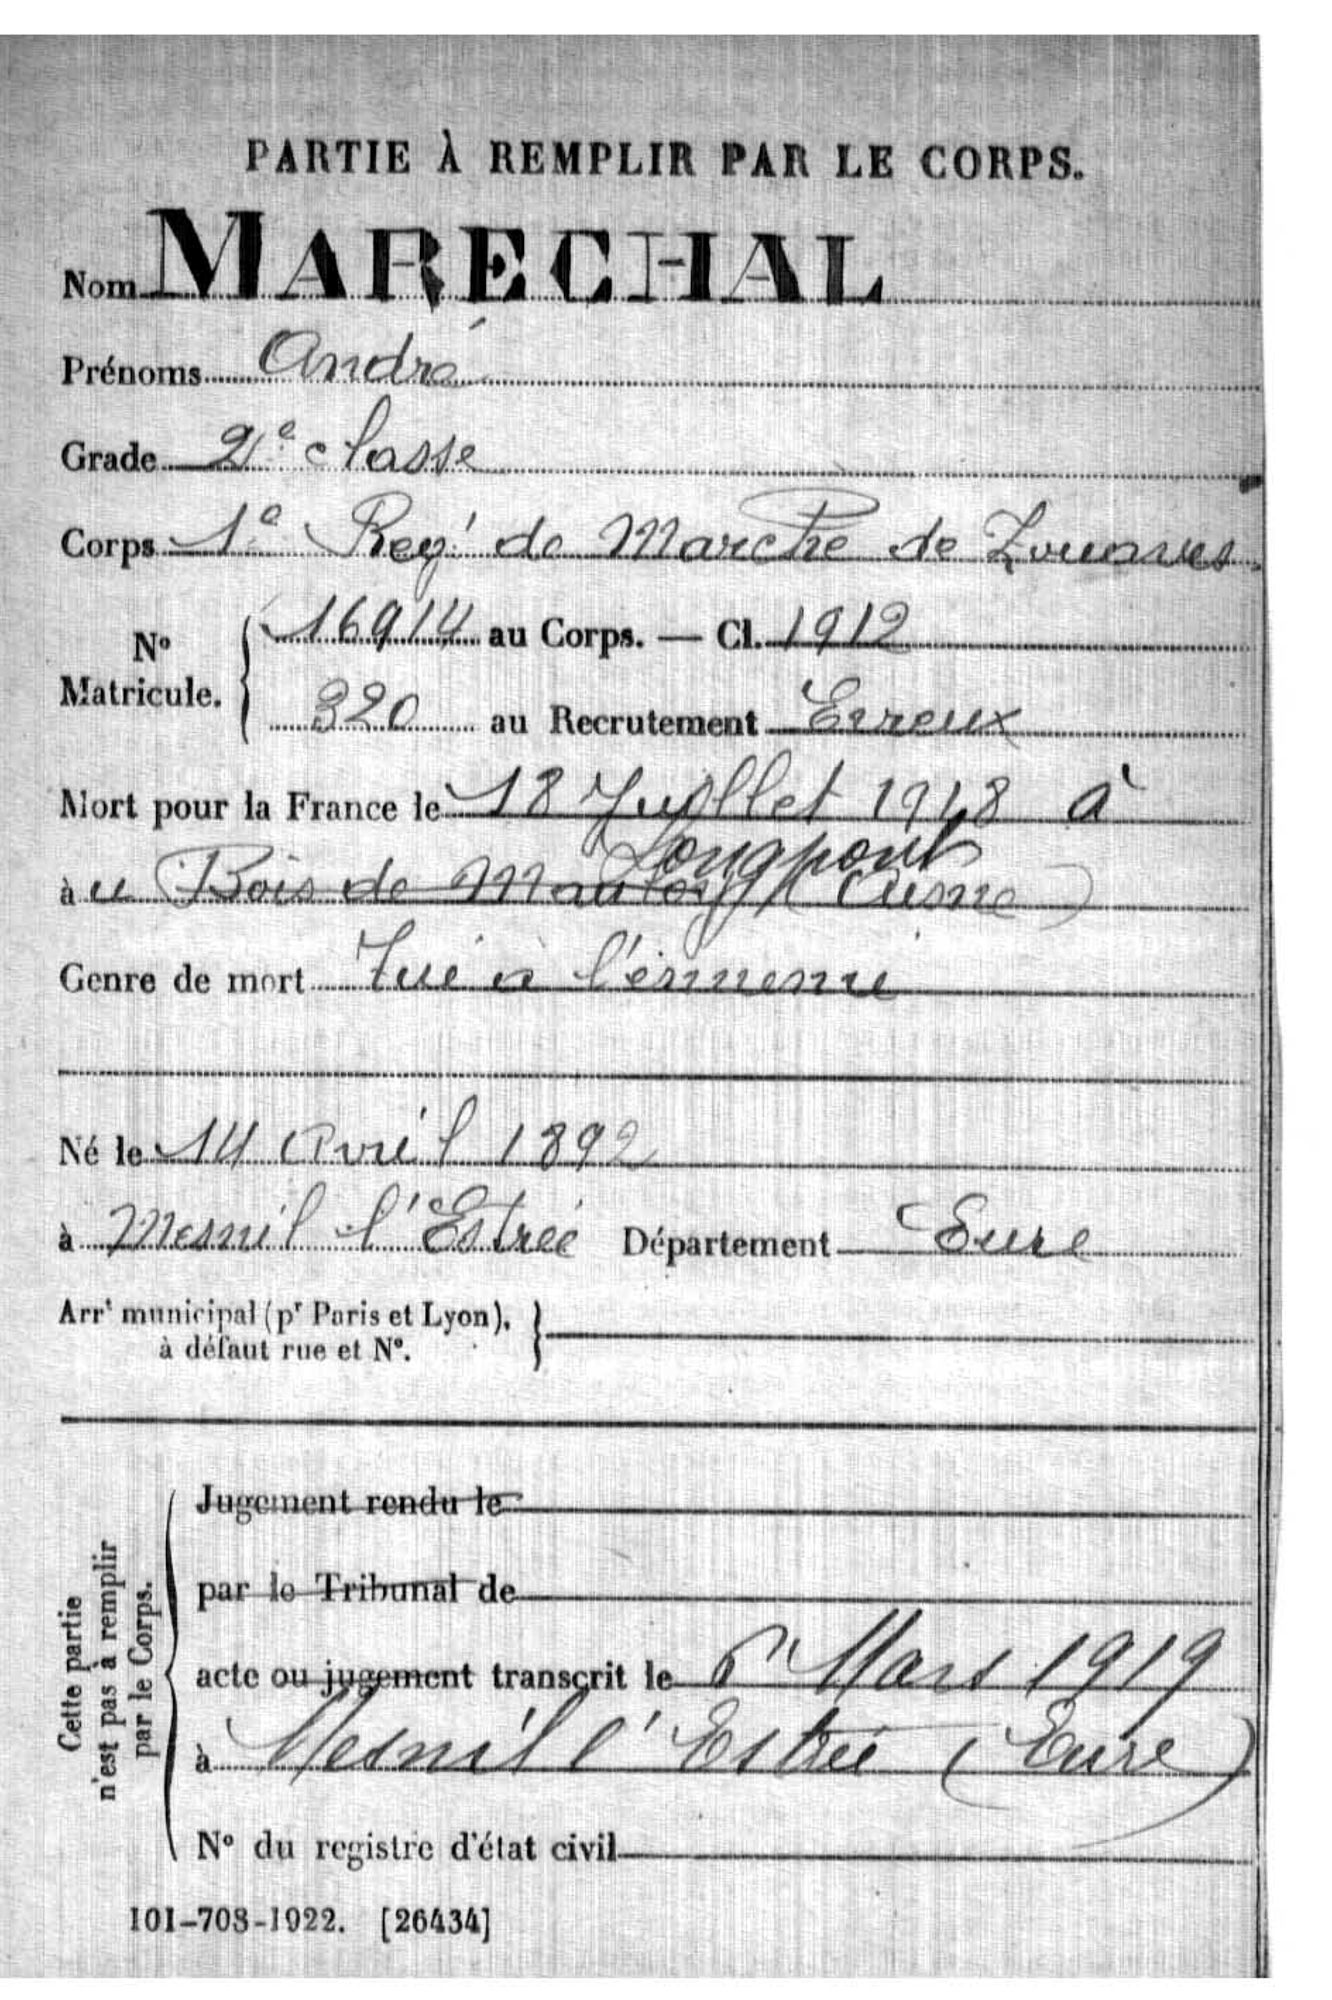 PARTIE À REMPLIR PAR LE CORPS.
Nom MARECHAL
Prénoms André
Grade 2e classe
Corps 1e Regt de Marche de Zouaves
No Matricule. { 16914 au Corps. — Cl. 1912
320 au Recrutement Evreux
Mort pour la France le 18 Juillet 1918 à
Longpont
à u Bois de Mauloy (Aisne)
Genre de mort Tué à l'ennemi
Né le 14 Avril 1892
à Mesnil l'Estrée Département Eure
Arrt municipal (pr Paris et Lyon),
à défaut rue et No.
Cette partie
n'est pas à remplir
par le Corps.
Jugement rendu le
par le Tribunal de
acte ou jugement transcrit le 6 Mars 1919
à Mesnil l'Estrée (Eure)
No du registre d'état civil
101-708-1922. [26434]